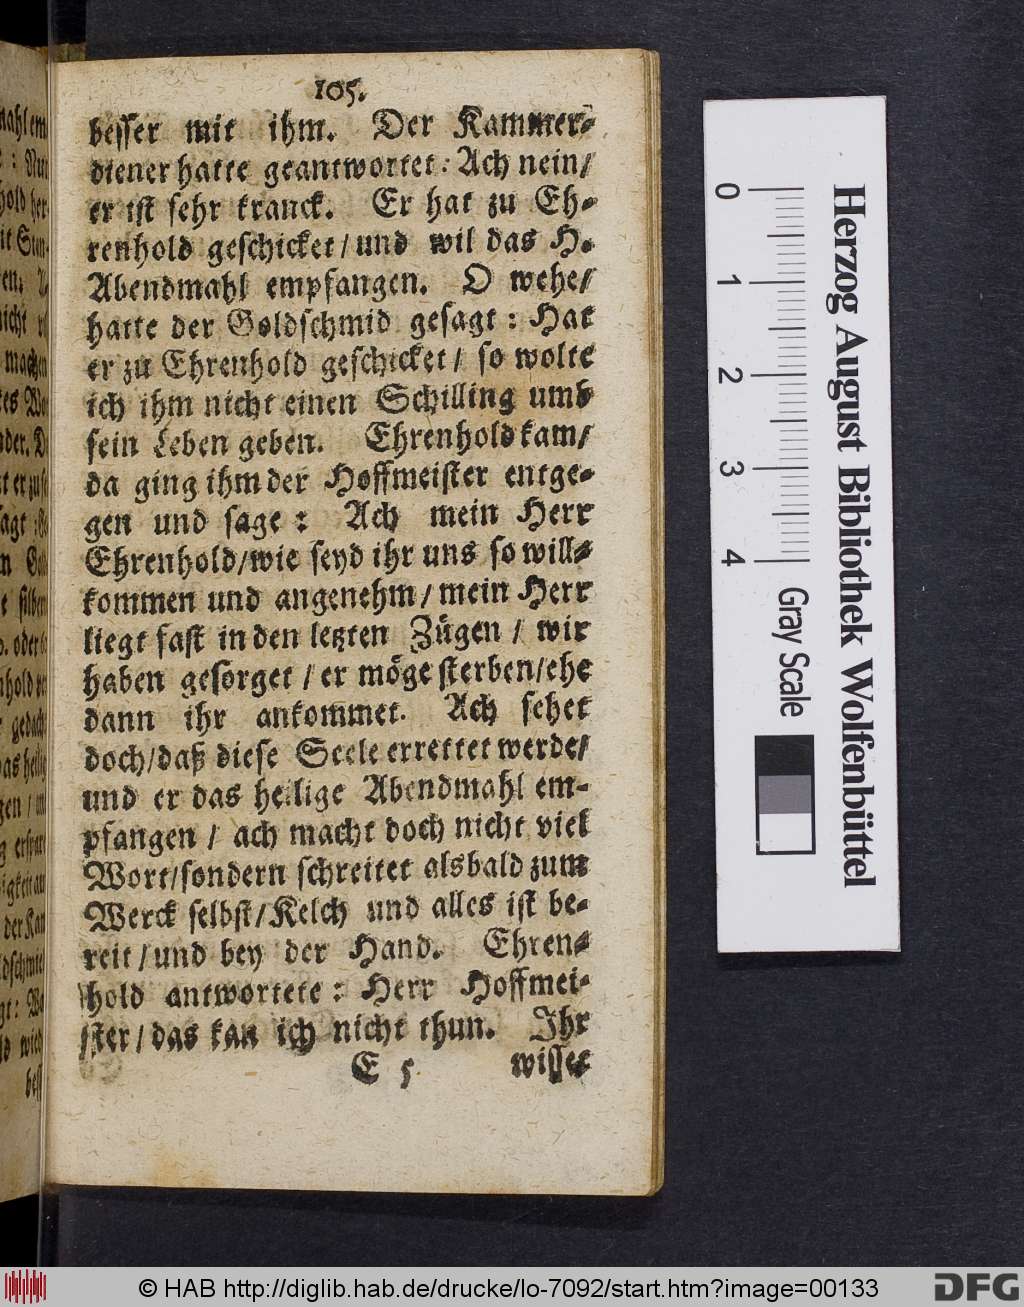 105.
besser mit ihm. Der Kammer-
diener hatte geantwortet: Ach nein/
er ist sehr kranck. Er hat zu Eh-
renhold geschicket/und wil das H.
Abendmahl empfangen. O wehe/
hatte der Goldschmid gesagt: Hat
er zu Ehrenhold geschicket/ so wolte
ich ihm nicht einen Schilling umb
sein Leben geben. Ehrenhold kam/
da ging ihm der Hoffmeister entge-
gen und sage: Ach mein Herr
Ehrenhold/wie seyd ihr uns so will-
kommen und angenehm/mein Herr
liegt fast in den letzten Zügen/ wir
haben gesorget/er möge sterben/ehe
dann ihr ankommet. Ach sehet
doch/daß diese Seele errettet werde/
und er das heilige Abendmahl em-
pfangen/ ach macht doch nicht viel
Wort/sondern schreitet alsbald zum
Werck selbst/Kelch und alles ist be-
reit/und bey der Hand. Ehren-
hold antwortete: Herr Hoffmei-
ster/das kan ich nicht thun. Ihr
E 5 wisset
0 1 2 3 4
Gray Scale
Herzog August Bibliothek Wolfenbüttel
© HAB http://diglib.hab.de/drucke/lo-7092/start.htm?image=00133
DFG